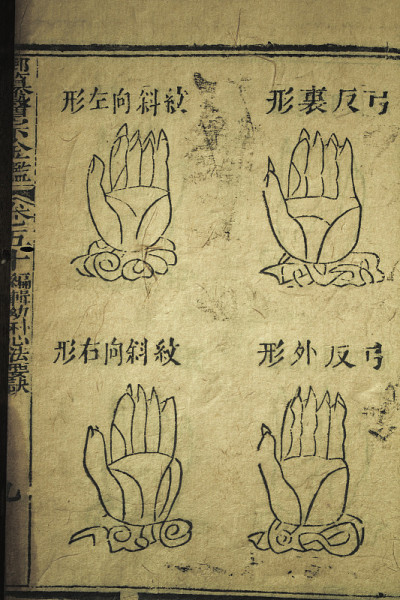 弓反裏形
紋斜向左形
弓反外形
紋斜向右形
御纂醫宗金鑑
卷五十
編輯幼科心法要訣
九